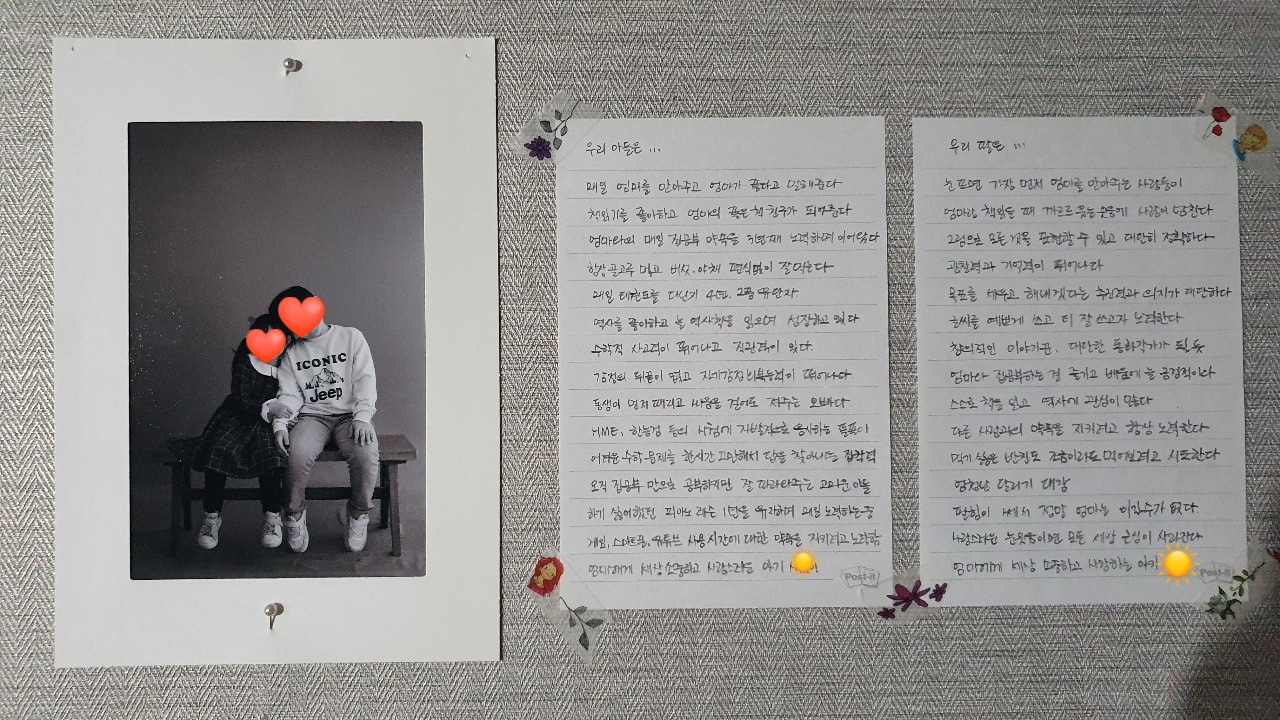 ICONIC
Jeep
우리 아들은 ...
매일 엄마를 안아주고 엄마가 좋다고 말해준다
책읽기를 좋아하고 엄마의 좋은 책 친구가 되어준다
엄마와의 매일 집공부 약속을 3년째 노력하며 이어왔다
항상 골고루 먹고 버섯, 야채 편식없이 잘먹는다
매일 테렌드를 다닌지 4년, 2품 유단자
역사를 좋아하고 늘 역사책을 읽으며 성장하고 있다
수학적 사고력이 뛰어나고 직관력이 있다.
감정의 뒤끝이 없고 자기감정 회복능력이 뛰어나다
동생이 먼저 때리고 싸움을 걸어도 져주는 오빠다
HME, 한능검 등의 시험에 자발적으로 응시하는
어려운 수학 문제를 한시간 고민해서 답을 찾아내는 집착력
오직 집공부 만으로 공부하지만 잘 따라와주는 고마운 아들
하기 싫어했던 피아노 레슨 1년을 유지하며 매일 노력하는 중
게임, 스마트폰, 유튜브 사용시간에 대한 약속을 지키려고 노력함
엄마에게 세상 소중하고 사랑스러운 아기
Post-it
우리 딸은 ...
눈뜨면 가장 먼저 엄마를 안아주는 사랑둥이
엄마랑 책읽을 때 까르르 웃는 웃음에 사랑이 넘친다
그림으로 모든 것을 표현할 수 있고 대단히 정확하다
관찰력과 기억력이 뛰어나다
목표를 세우고 해내겠다는 추진력과 의지가 대단하다
글씨를 예쁘게 쓰고 더 잘 쓰고자 노력한다
창의적인 이야기꾼, 대단한 동화작가가 될 듯
엄마랑 집공부하는 걸 즐기고 배움에 늘 긍정적이다
스스로 책을 읽고 역사에 관심이 많다
다른 사람과의 약속을 지키려고 항상 노력한다
먹기 싫은 반찬도 조금이라도 먹어보려고 시도한다
엄청난 달리기 대장
필힘이 세서 정말 엄마는 이길수가 없다
사랑스러운 눈웃음이면 모든 세상 근심이 사라진다
엄마에게 세상 소중하고 사랑하는 아가
Post-it